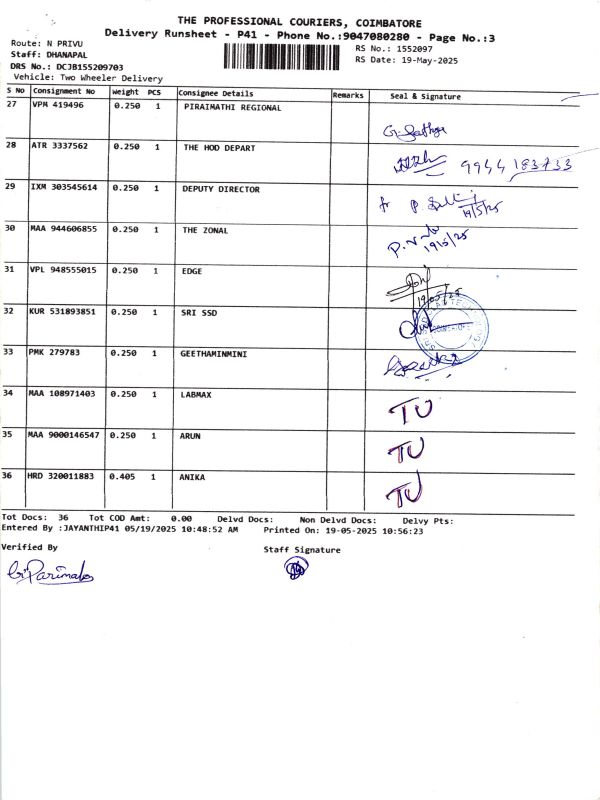 THE PROFESSIONAL COURIERS, COIMBATORE
Delivery Runsheet - P41 - Phone No.:9047080280 - Page No.:3
Route: N PRIVU
RS No.: 1552097
Staff: DHANAPAL
RS Date: 19-May-2025
DRS No.: DCJB155209703
Vehicle: Two Wheeler Delivery
S No Consignment No Weight PCS Consignee Details Remarks Seal & Signature
27 VPM 419496 0.250 1 PIRAIMATHI REGIONAL
28 ATR 3337562 0.250 1 THE HOD DEPART 9944 183733
29 IXM 303545614 0.250 1 DEPUTY DIRECTOR
19/5/25
30 MAA 944606855 0.250 1 THE ZONAL
19/5/25
31 VPL 948555015 0.250 1 EDGE
19/05/25
32 KUR 531893851 0.250 1 SRI SSD
33 PMK 279783 0.250 1 GEETHAMINMINI
34 MAA 108971403 0.250 1 LABMAX TU
35 MAA 9000146547 0.250 1 ARUN TU
36 HRD 320011883 0.405 1 ANIKA TU
Tot Docs: 36 Tot COD Amt: 0.00 Delvd Docs: Non Delvd Docs: Delvy Pts:
Entered By :JAYANTHIP41 05/19/2025 10:48:52 AM Printed On: 19-05-2025 10:56:23
Verified By
Staff Signature